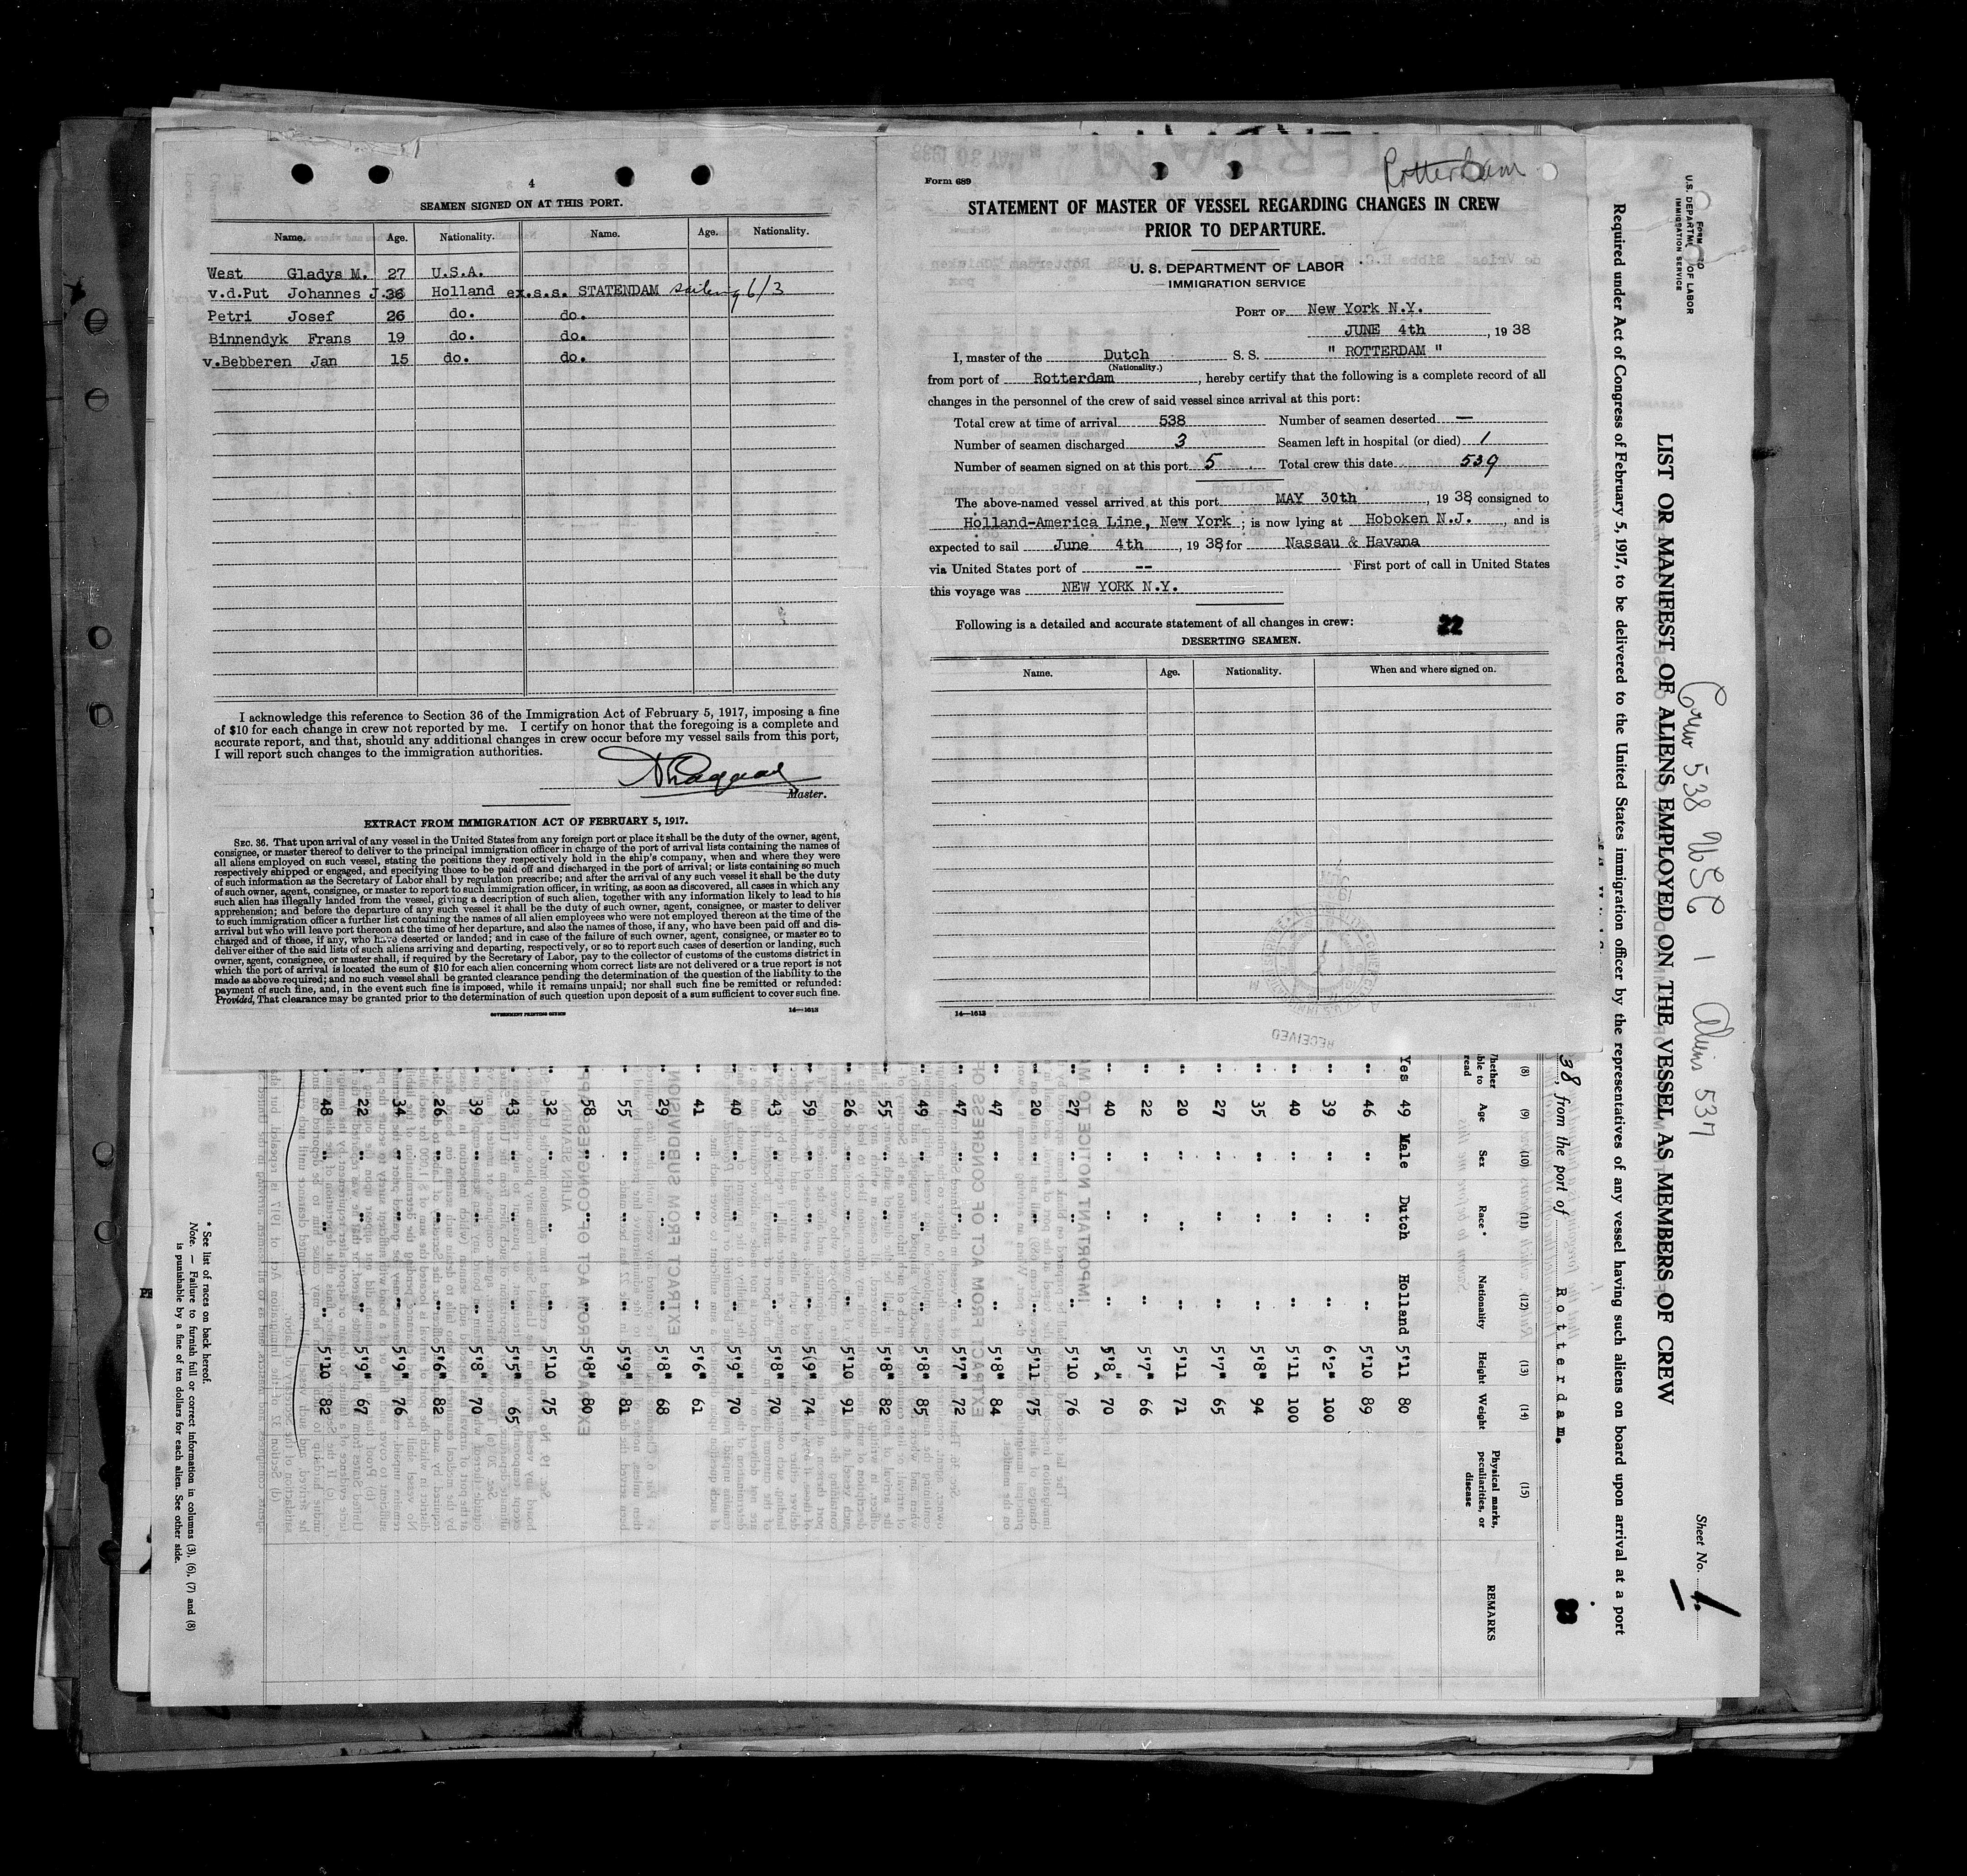 4
SEAMEN SIGNED ON AT THIS PORT.
Name. Age. Nationality. Name. Age. Nationality.
West Gladys M. 27 U.S.A.
v.d.Put Johannes J. 36 Holland ex.s.s. STATENDAM sailing 6/3
Petri Josef 26 do. do.
Binnendyk Frans 19 do. do.
v.Bebberen Jan 15 do. do.
I acknowledge this reference to Section 36 of the Immigration Act of February 5, 1917, imposing a fine
of $10 for each change in crew not reported by me. I certify on honor that the foregoing is a complete and
accurate report, and that, should any additional changes in crew occur before my vessel sails from this port,
I will report such changes to the immigration authorities.
Master.
EXTRACT FROM IMMIGRATION ACT OF FEBRUARY 5, 1917.
SEC. 36. That upon arrival of any vessel in the United States from any foreign port or place it shall be the duty of the owner, agent,
consignee, or master thereof to deliver to the principal immigration officer in charge of the port of arrival lists containing the names of
all aliens employed on such vessel, stating the positions they respectively hold in the ship's company, when and where they were
respectively shipped or engaged, and specifying those to be paid off and discharged in the port of arrival; or lists containing so much
of such information as the Secretary of Labor shall by regulation prescribe; and after the arrival of any such vessel it shall be the duty
of such owner, agent, consignee, or master to report to such immigration officer, in writing, as soon as discovered, all cases in which any
such alien has illegally landed from the vessel, giving a description of such alien, together with any information likely to lead to his
apprehension; and before the departure of any such vessel it shall be the duty of such owner, agent, consignee, or master to deliver
to such immigration officer a further list containing the names of all alien employees who were not employed thereon at the time of the
arrival but who will leave port thereon at the time of her departure, and also the names of those, if any, who have been paid off and dis-
charged and of those, if any, who have deserted or landed; and in case of the failure of such owner, agent, consignee, or master so to
deliver either of the said lists of such aliens arriving and departing, respectively, or so to report such cases of desertion or landing, such
owner, agent, consignee, or master shall, if required by the Secretary of Labor, pay to the collector of customs of the customs district in
which the port of arrival is located the sum of $10 for each alien concerning whom correct lists are not delivered or a true report is not
made as above required; and no such vessel shall be granted clearance pending the determination of the question of the liability to the
payment of such fine, and, in the event such fine is imposed, while it remains unpaid; nor shall such fine be remitted or refunded:
Provided, That clearance may be granted prior to the determination of such question upon deposit of a sum sufficient to cover such fine.
GOVERNMENT PRINTING OFFICE 14—1613
Form 689
Rotterdam
STATEMENT OF MASTER OF VESSEL REGARDING CHANGES IN CREW
PRIOR TO DEPARTURE.
U. S. DEPARTMENT OF LABOR
IMMIGRATION SERVICE
PORT OF New York N.Y.
JUNE 4th, 1938
I, master of the Dutch S. S. " ROTTERDAM "
(Nationality.)
from port of Rotterdam, hereby certify that the following is a complete record of all
changes in the personnel of the crew of said vessel since arrival at this port:
Total crew at time of arrival 538 Number of seamen deserted —
Number of seamen discharged 3 Seamen left in hospital (or died) 1
Number of seamen signed on at this port 5 Total crew this date 539
The above-named vessel arrived at this port MAY 30th, 1938 consigned to
Holland-America Line, New York; is now lying at Hoboken N.J., and is
expected to sail June 4th, 1938, for Nassau & Havana
via United States port of -- First port of call in United States
this voyage was NEW YORK N.Y.
Following is a detailed and accurate statement of all changes in crew: 22
DESERTING SEAMEN.
Name. Age. Nationality. When and where signed on.
14—1613
RECEIVED
U.S. DEPARTMENT OF LABOR
IMMIGRATION SERVICE
Crew 538 1 Aliens 537
Sheet No. 1.
LIST OR MANIFEST OF ALIENS EMPLOYED ON THE VESSEL AS MEMBERS OF CREW
Required under Act of Congress of February 5, 1917, to be delivered to the United States immigration officer by the representatives of any vessel having such aliens on board upon arrival at a port
38, from the port of Rotterdam.
(8) (9) (10) (11) (12) (13) (14) (15)
Whether able to read Age Sex Race* Nationality Height Weight Physical marks, peculiarities, or disease REMARKS
Yes 49 Male Dutch Holland 5'11 80
" 46 " " " 5'10 89
" 39 " " " 6'2" 100
" 40 " " " 5'11 100
" 35 " " " 5'8" 94
" 27 " " " 5'7" 65
" 20 " " " 5'11 71
" 22 " " " 5'7" 66
" 40 " " " 5'8" 70
" 27 " " " 5'10 76
" 20 " " " 5'11 75
" 47 " " " 5'8" 84
" 47 " " " 5'7" 72
" 49 " " " 5'8" 85
" 55 " " " 5'8" 82
" 26 " " " 5'10 91
" 59 " " " 5'9" 74
" 43 " " " 5'8" 70
" 40 " " " 5'9" 70
" 41 " " " 5'6" 61
" 29 " " " 5'8" 68
" 55 " " " 5'9" 81
" 58 " " " 5'8" 80
" 32 " " " 5'10 75
" 43 " " " 5'5" 65
" 39 " " " 5'8" 70
" 26 " " " 5'6" 82
" 34 " " " 5'9" 76
" 22 " " " 5'9" 67
" 48 " " " 5'10 82
* See list of races on back hereof.
Note. — Failure to furnish full or correct information in columns (3), (6), (7) and (8)
is punishable by a fine of ten dollars for each alien. See other side.